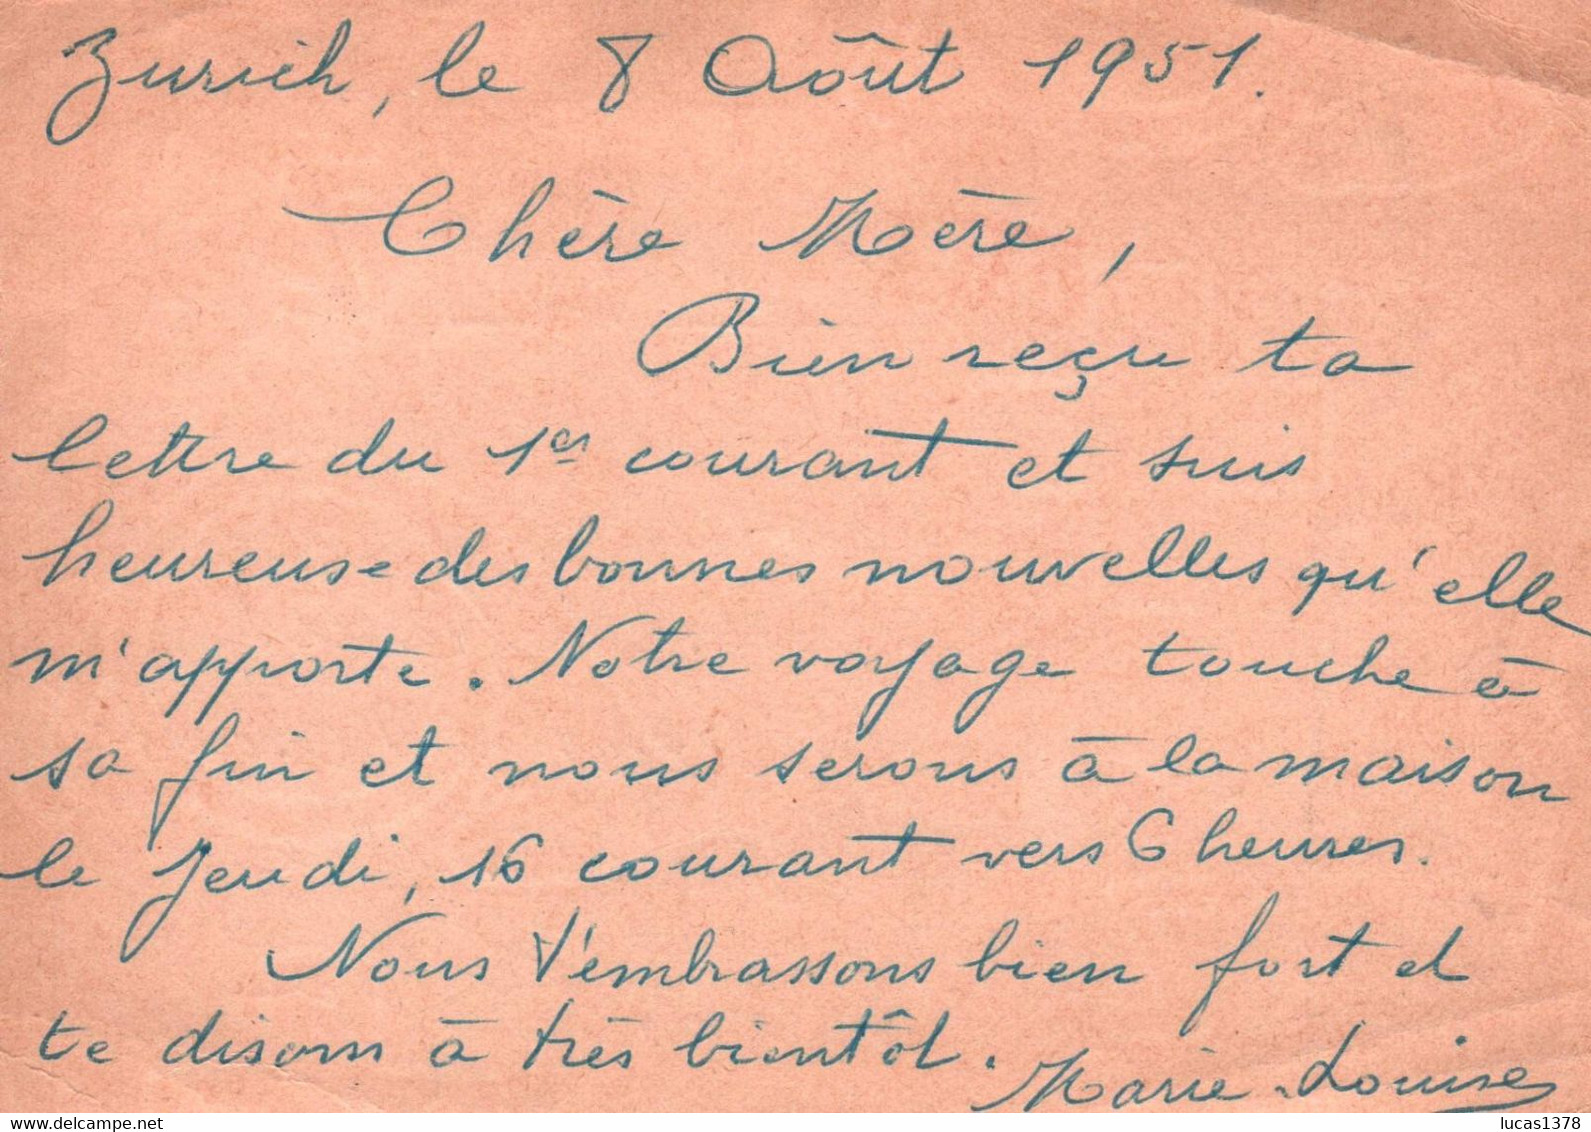 Zurich, le 8 Août 1951.
Chère Mère,
Bien reçu ta
lettre du 1er courant et suis
heureuse des bonnes nouvelles qu'elle
m'apporte. Notre voyage touche à
sa fin et nous serons à la maison
le Jeudi, 16 courant vers 6 heures.
Nous t'embrassons bien fort et
te disons à très bientôt.
Marie-Louise
delcampe.net
lucas1378